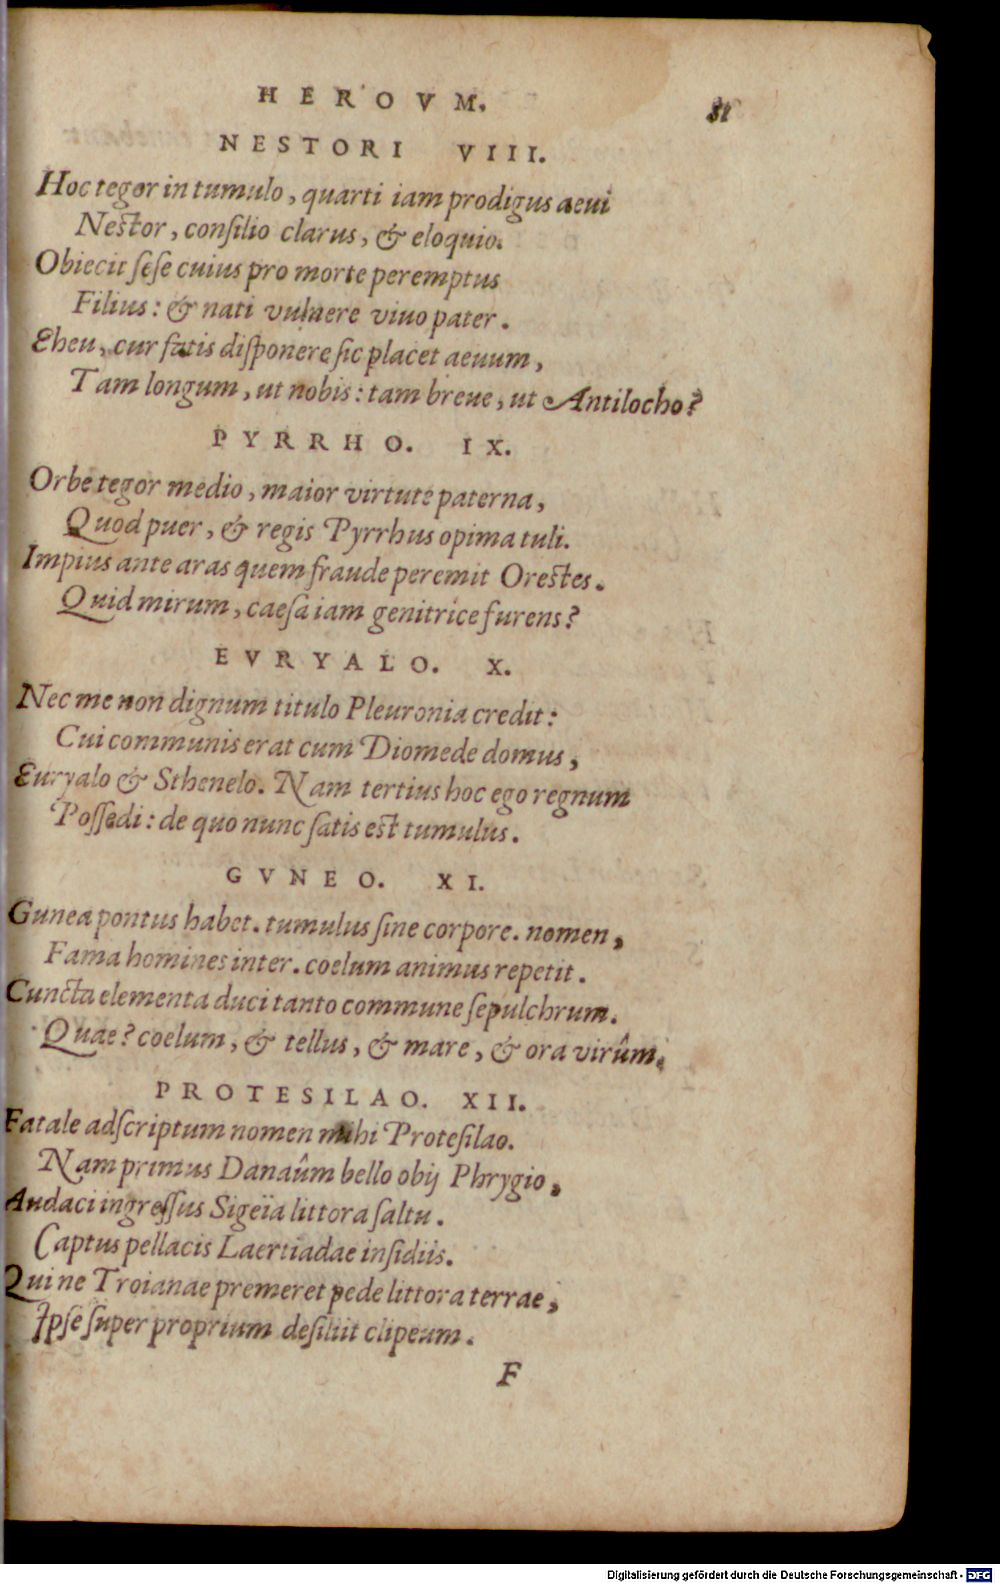 HEROVM. 81
NESTORI VIII.
Hoc tegor in tumulo, quarti iam prodigus aeui
Nestor, consilio clarus, & eloquio.
Obiecit sese cuius pro morte peremptus
Filius: & nati vulnere viuo pater.
Eheu, cur fatis disponere sic placet aeuum,
Tam longum, ut nobis: tam breue, ut Antilocho?
PYRRHO. IX.
Orbe tegor medio, maior virtute paterna,
Quod puer, & regis Pyrrhus opima tuli.
Impius ante aras quem fraude peremit Orestes.
Quid mirum, caesa iam genitrice furens?
EVRYALO. X.
Nec me non dignum titulo Pleuronia credit:
Cui communis erat cum Diomede domus,
Euryalo & Sthenelo. Nam tertius hoc ego regnum
Possedi: de quo nunc satis est tumulus.
GVNEO. XI.
Gunea pontus habet. tumulus sine corpore. nomen,
Fama homines inter. coelum animus repetit.
Cuncta elementa duci tanto commune sepulchrum.
Quae? coelum, & tellus, & mare, & ora virûm.
PROTESILAO. XII.
Fatale adscriptum nomen mihi Protesilao.
Nam primus Danaûm bello obij Phrygio,
Audaci ingressus Sigeïa littora saltu.
Captus pellacis Laertiadae insidiis.
Qui ne Troianae premeret pede littora terrae,
Ipse super proprium desiliit clipeum.
F
Digitalisierung gefördert durch die Deutsche Forschungsgemeinschaft - DFG